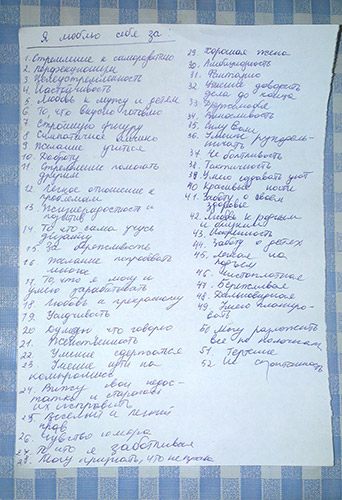 Я люблю себя за:
1. Стремление к саморазвитию
2. Перфекционизм
3. Целеустремленность
4. Настойчивость
5. Любовь к мужу и детям
6. То, что вкусно готовлю
7. Стройную фигуру
8. Симпатичное личико
9. Желание учиться
10. Доброту
11. Стремление помогать
другим
12. Легкое отношение к
проблемам
13. Жизнерадостность и
позитив
14. То что сама учусь
15. За бережливость
16. Желание попробовать
многое
17. То, что я могу и
умею зарабатывать
18. Любовь к прекрасному
19. Усидчивость
20 Думаю что говорю
21.
22. Умение сдержаться
23. Умение идти на
компромисс
24. Вижу свои недос-
татки и стараюсь
их исправить
25. Веселый и легкий
нрав
26. Чувство юмора
27. То что я заботливая
28. Могу признать, что не права
29. Хорошая жена
30. Амбициозность
31. Фантазию
32 Умение доводить
дела до конца
33.
34. Выносливость
35. Силу Воли
36. Умение рукодель-
ничать
37. Не болтливость
38. Тактичность
39. Умею создавать уют
40 Красивые ногти
41. Заботу о своем
здоровье
42. Любовь к родным
и близким
43. Искренность
44. Заботу о детях
45. Легкая на
подъем
46. Чистоплотная
47. Бережливая
48. Дальновидная
49. Умею планиро-
вать
50 Могу разложить
все по полочкам
51. Терпение
52. Не спонтанность